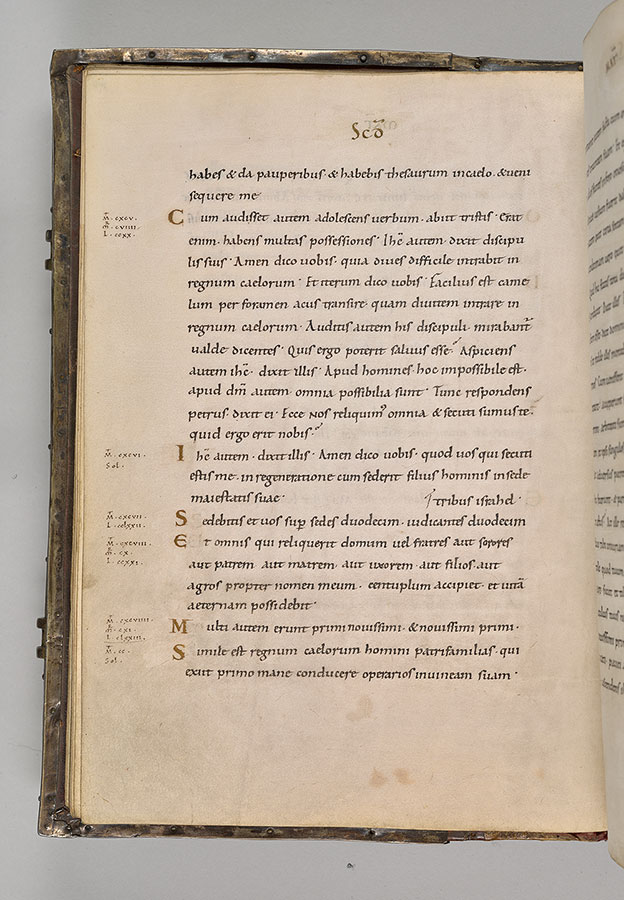 Scd̄
habes & da pauperibus · & habebis thesaurum incaelo · &ueni
sequere me
M̄ · cxcv ·
m̄r · cviiii ·
L · ccxx ·
Cum audisset autem adolescens uerbum · abiit tristis · Erat
enim · habens multas possessiones · Ihc̄ autem · dixit discipu
lis suis · Amen dico uobis · quia diues difficile intrabit in
regnum caelorum · Et iterum dico uobis · Facilius est came
lum per foramen acus transire · quam diuitem intrare in
regnum caelorum · Auditis autem his discipuli · mirabant᷑
ualde dicentes · Quis ergo poterit saluus esse · Aspiciens
autem ihc̄ · dixit illis · Apud homines · hoc impossibile est ·
apud dm̄ autem · omnia possibilia sunt · Tunc respondens
petrus · dixit ei · Ecce nos reliquim᾽ omnia & secuti sumus te ·
quid ergo erit nobis ·
M̄ · cxcvi ·
Sol ·
Ihc̄ autem · dixit illis · Amen dico uobis · quod uos qui secuti
estis me · in regeneratione cum sederit filius hominis insede
maiestatis suae · tribus israhel ·
M̄ · cxcvii ·
L · cclxxii ·
Sedebitis et uos sup̄ sedes duodecim · iudicantes duodecim
M̄ · cxcviii ·
m̄r · cx ·
L · ccxxi ·
Et omnis qui reliquerit domum uel fratres aut sorores
aut patrem aut matrem aut uxorem · aut filios · aut
agros propter nomen meum · centuplum accipiet · et uitā
aeternam possidebit ·
M̄ · cxcviiii ·
m̄r · cxi ·
L · clxxiii ·
Multi autem erunt primi nouissimi · & nouissimi primi ·
M̄ · cc ·
Sol ·
Simile est regnum caelorum homini patrifamilias · qui
exiit primo mane conducere operarios inuineam suam ·